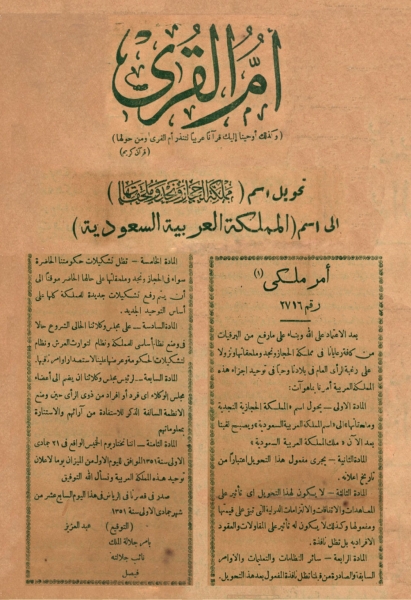 أم القرى
( وكذلك أوحينا إليك قرآنا عربيا لتنذر أم القرى ومن حولها )
( قرآن كريم )
تحويل اسم ( مملكة الحجاز ونجد وملحقاتها )
الى اسم ( المملكة العربية السعودية )
أمر ملكي (١)
رقم ٢٧١٦
بعد الاعتماد على الله وبناء على مارفع من البرقيات
من كافة رعايانا في مملكة الحجاز ونجد وملحقاتها ونزولا
على رغبة الرأى العام في بلادنا وحبا في توحيد اجزاء هذه
المملكة العربية أمرنا بما هو آت :
المادة الاولى — يحول اسم « المملكة الحجازية النجدية
وملحقاتها » الى اسم « المملكة العربية السعودية » ويصبح لقبنا
بعد الآن « ملك المملكة العربية السعودية »
المادة الثانية — يجرى مفعول هذا التحويل اعتبارا من
تاريخ اعلانه .
المادة الثالثة — لا يكون لهذا التحويل اى تأثير على
المعاهدات والاتفاقات والالتزامات الدولية التى تبقى على قيمتها
ومفعولها وكذلك لا يكون له تأثير على المقاولات والعقود
الافرادية بل تظل نافذة .
المادة الرابعة — سائر النظامات والتعليمات والاوامر
السابقة والصادرة من قبلنا تظل نافذة المفعول بعد هذا التحويل .
المادة الخامسة — تظل تشكيلات حكومتنا الحاضرة
سواء في الحجاز ونجد وملحقاتها على حالها الحاضر موقتا الى
أن يتم وضع تشكيلات جديدة للمملكة كلها على
أساس التوحيد الجديد .
المادة السادسة — على مجلس وكلائنا الحالى الشروع حالا
في وضع نظام أساسى للمملكة ونظام لتوارث العرش ونظام
لتشكيلات الحكومة وعرضها علينا لاستصدار اوامرنا فيها .
المادة السابعة — لرئيس مجلس وكلائنا ان يضم الى أعضاء
مجلس الوكلاء اى فرد أو افراد من ذوى الرأى حين وضع
الانظمة السالفة الذكر للاستفادة من آرائهم والاستنارة
بمعلوماتهم
المادة الثامنة — إننا نختار يوم الخميس الواقع في ٢١ جمادى
الاولى سنة ١٣٥١ الموافق لليوم الاول من الميزان يوما لاعلان
توحيد هذه المملكة العربية ونسأل الله التوفيق
صدر في قصرنا في الرياض في هذا اليوم السابع عشر من
شهر جمادى الاولى سنة ١٣٥١
( التوقيع ) عبد العزيز
بامر جلالة الملك
نائب جلالته
فيصل